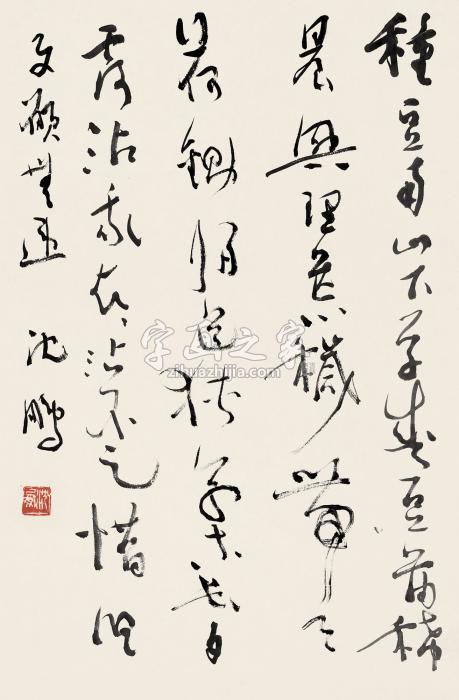 種豆南山下草盛豆苗稀
晨興理荒穢帶
月荷鋤歸道狹草木長夕
露沾我衣〻沾不足惜但
使願無違 沈鵬
字画之家
zihuazhijia.com